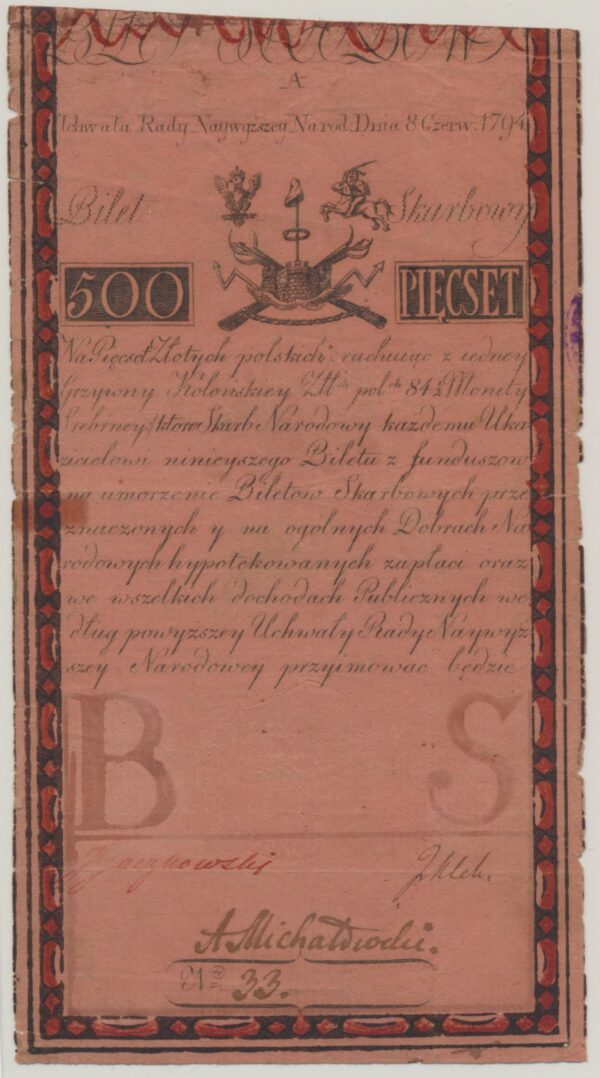 A
Uchwała Rady Naywyższey Narod. Dnia 8 Czerw. 1794
Bilet Skarbowy
500 PIĘCSET
Na Pięcset Złotych polskich: rachuiąc z iedney
Grzywny Kolońskiey Złł. pol. 84½ Monety
Srebrney/ktore Skarb Narodowy każdemu Uka
zicielowi ninieyszego Biletu z funduszow
na umorzenie Biletow Skarbowych prze
znaczonych y na ogolnych Dobrach Na
rodowych hypotekowanych zapłaci oraz
we wszelkich dochodach Publicznych we
dług powyższey Uchwały Rady Naywyż
szey Narodowey przyimować będzie
B S
A Michałowski.
No 33.